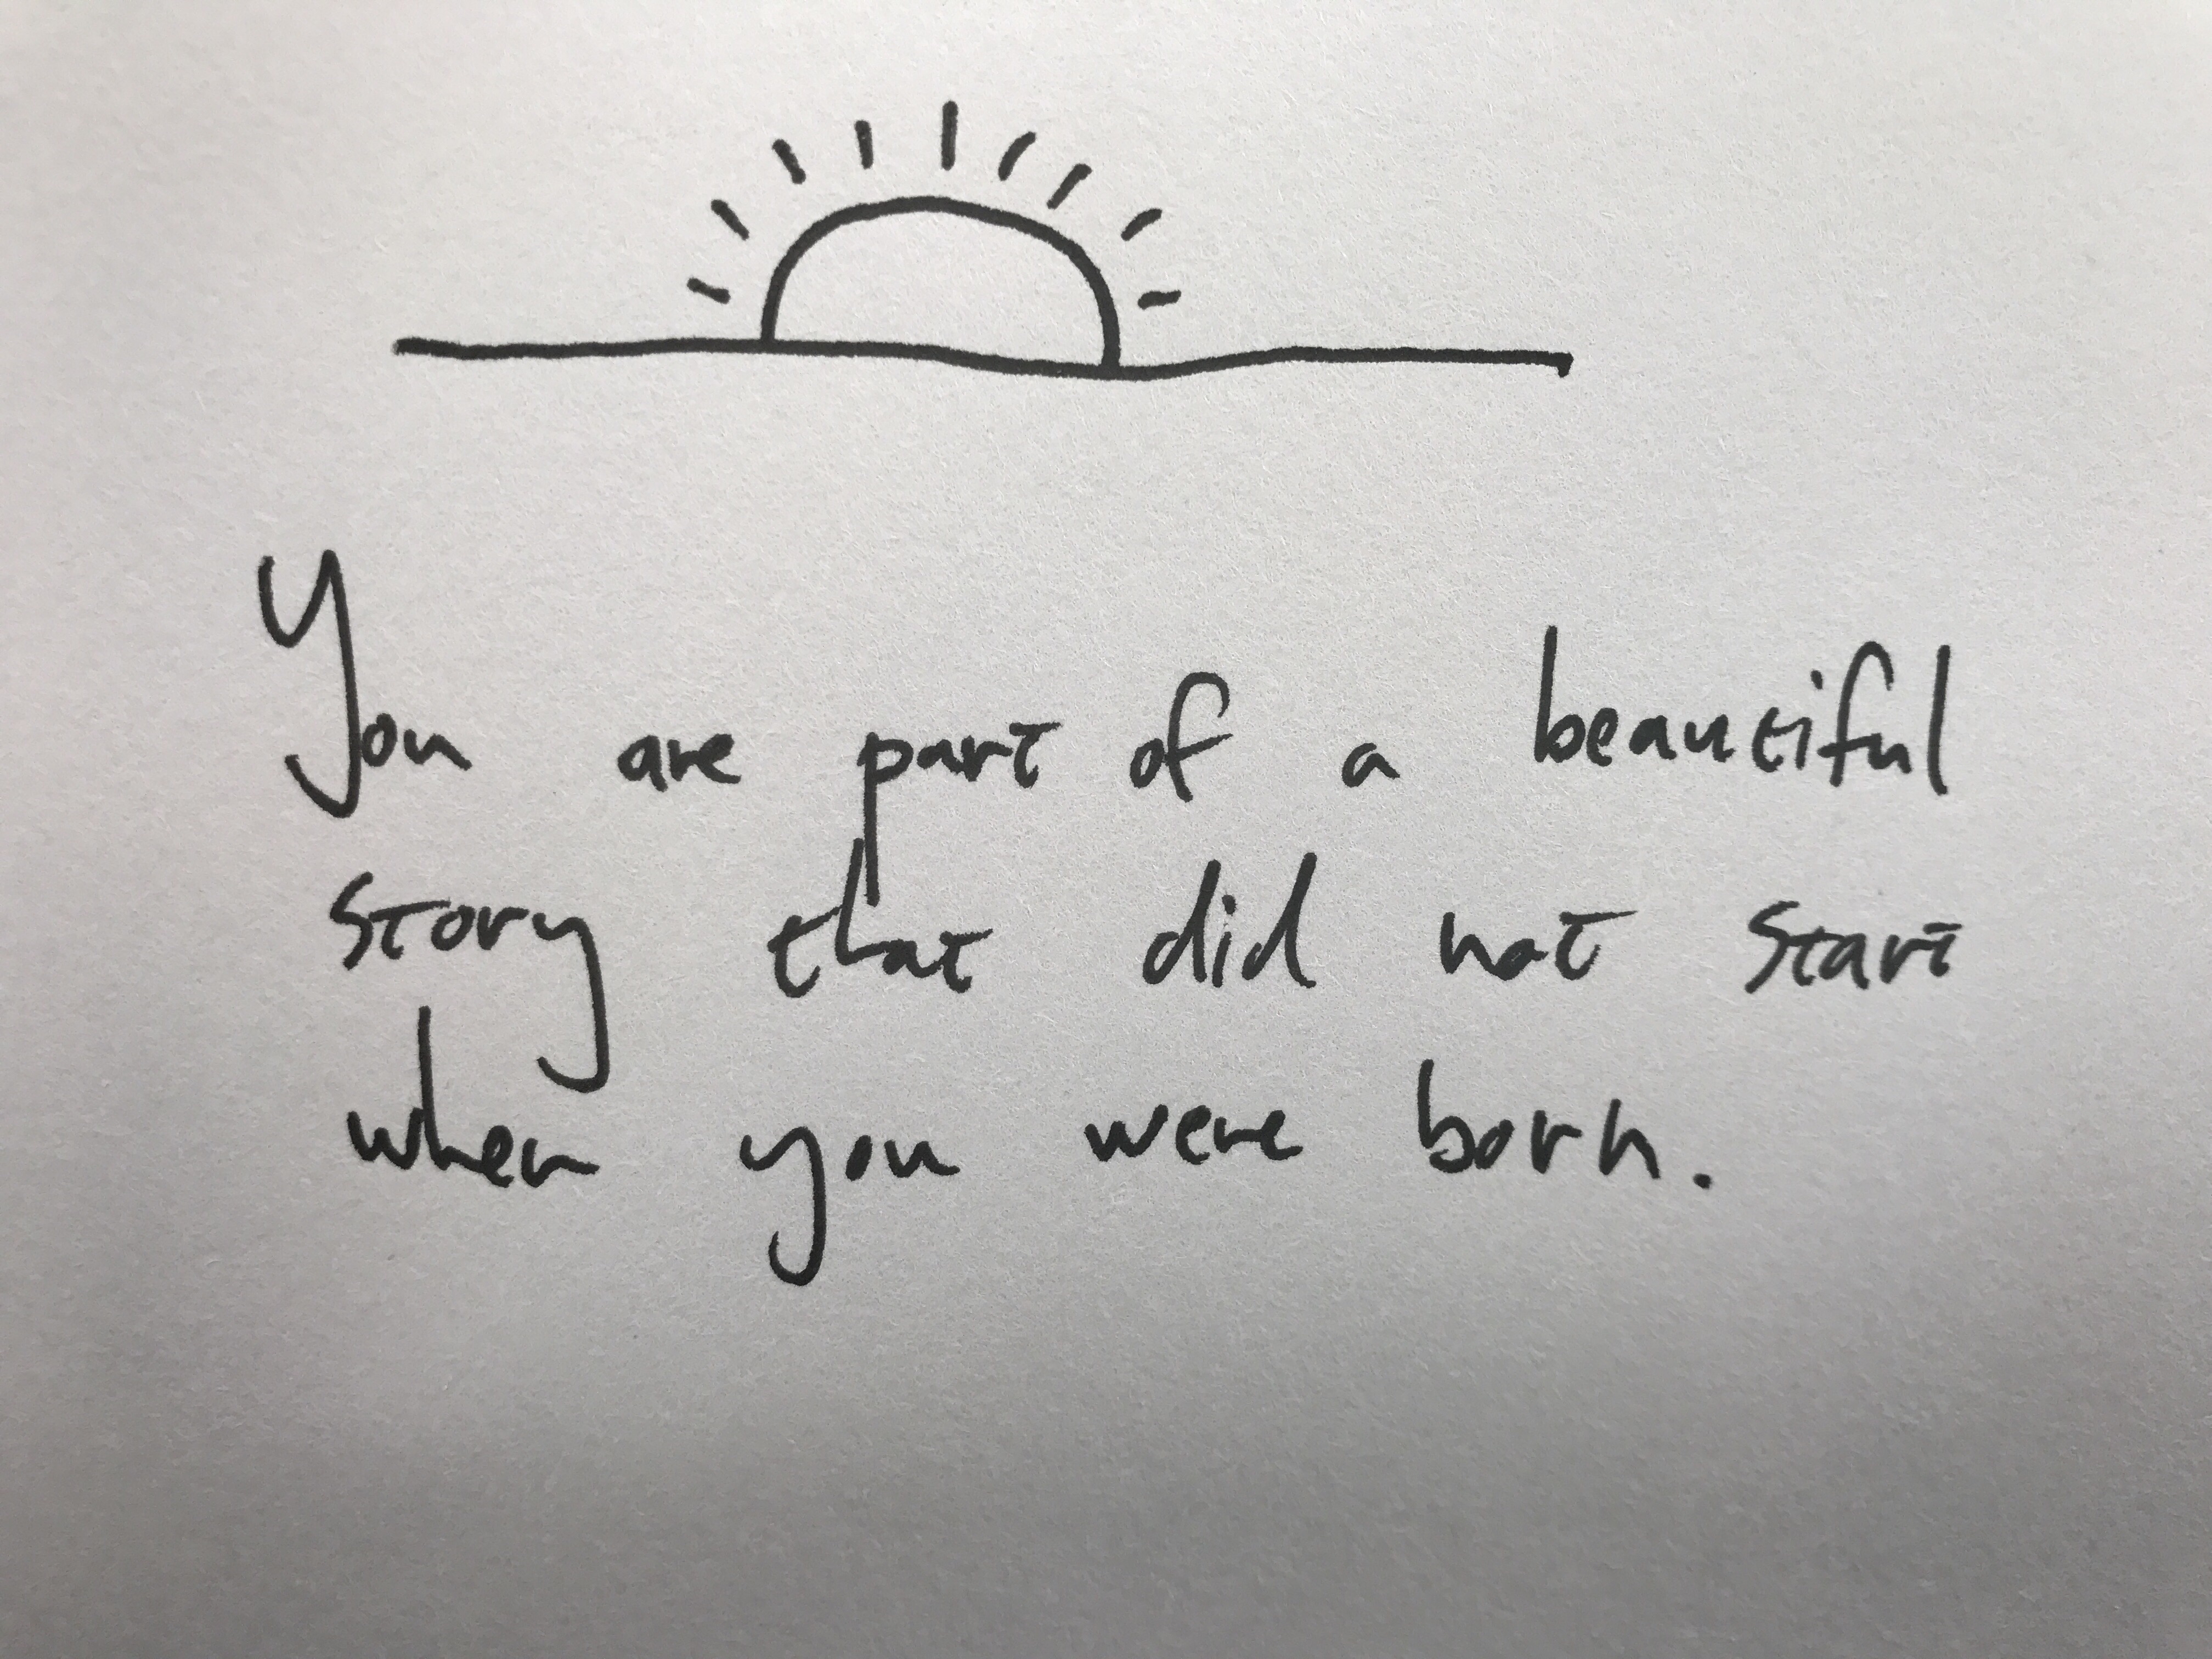 You are part of a beautiful
story that did not start
when you were born.